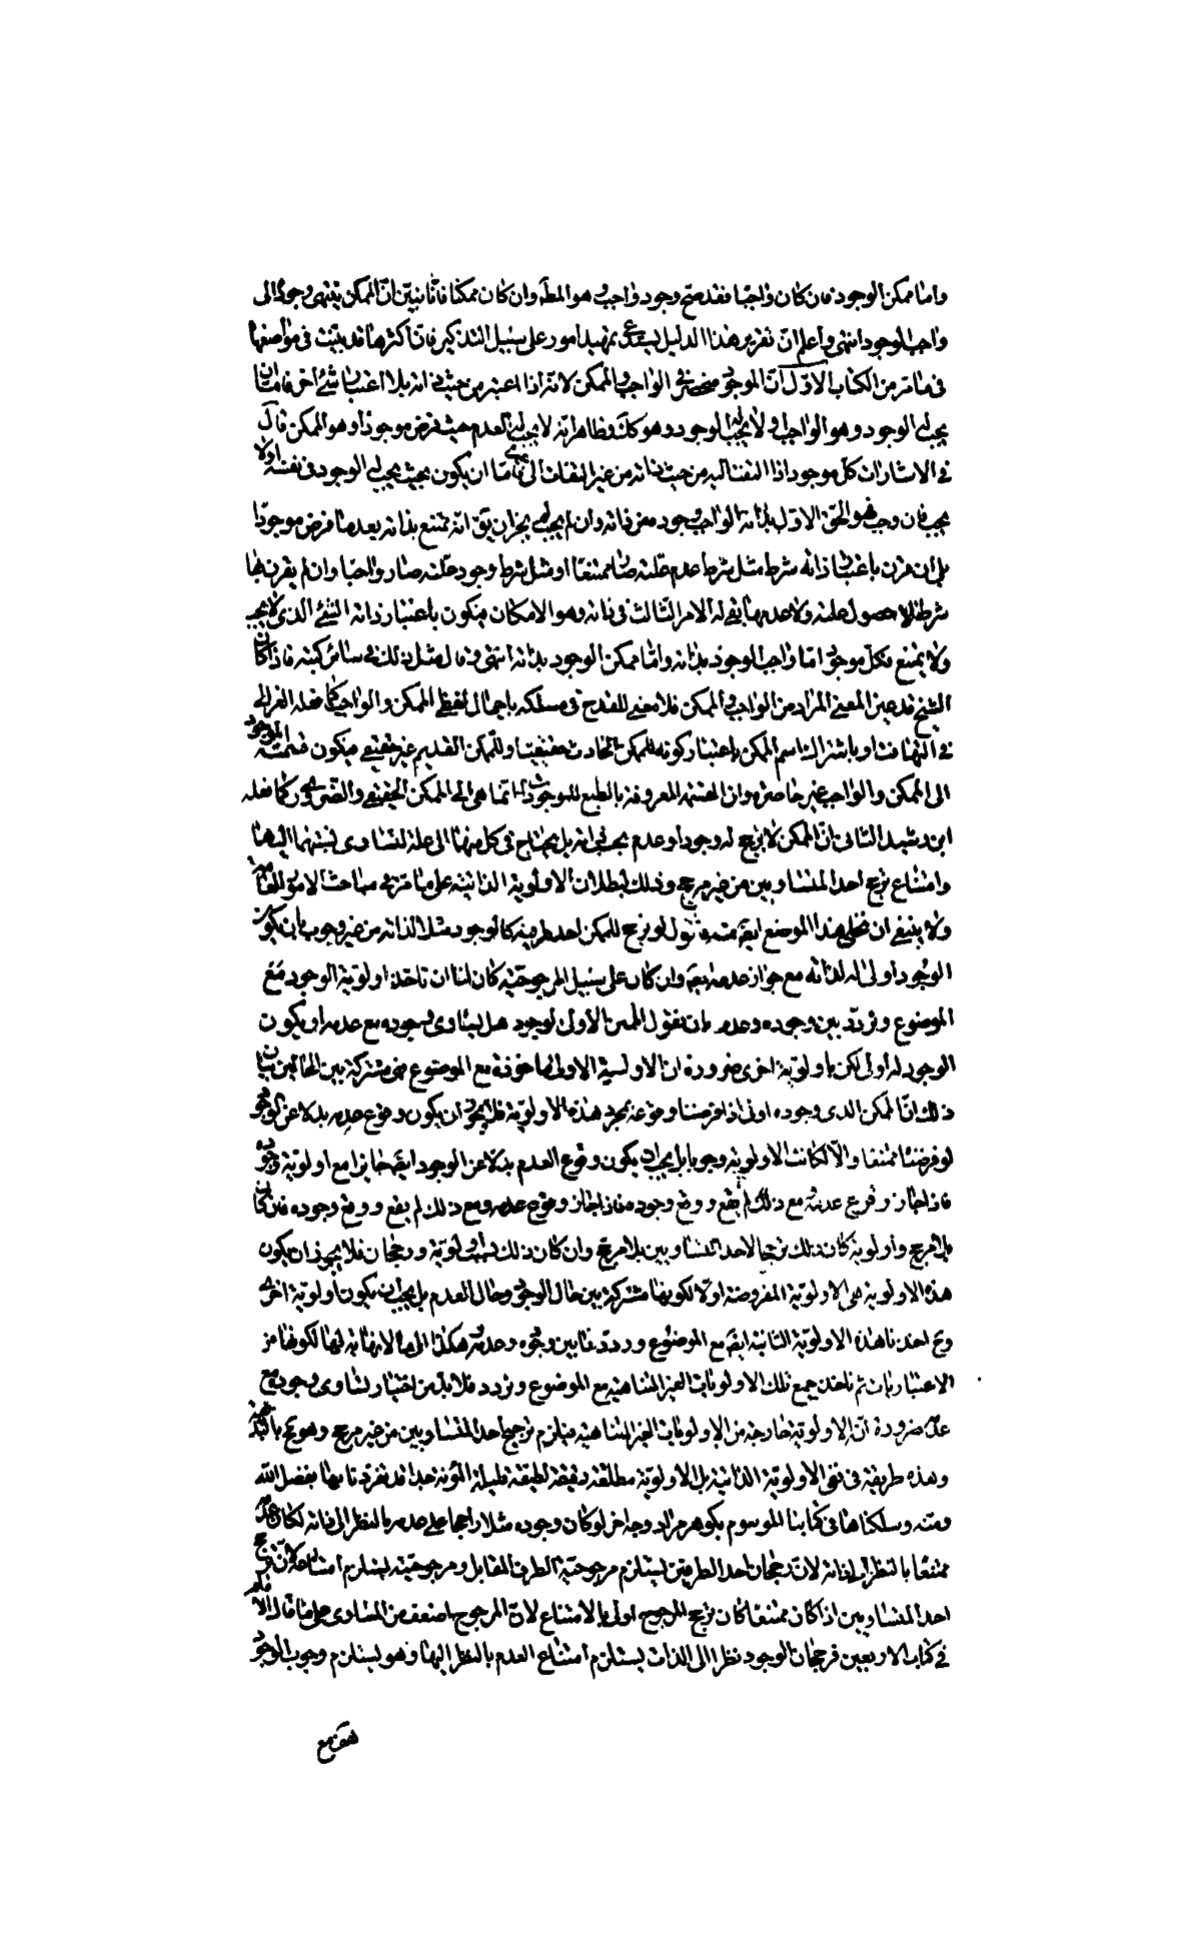 واما ممكن الوجود فان كان واجبا فقد صح وجود واجب وهو المطـ وان كان ممكنا فانا نبين ان الممكن ينتهى وجوده الى
واجب الوجود انتهى واعلم ان تقرير هذا الدليل يستدعى تمهيد امور على سبيل التذكير فان اكثرها قد بينت فى مواضعها
فى ما مر من الكتاب الاول ان الموجود منحصر فى الواجب والممكن لانه اذا اعتبر من حيث ذاته بلا اعتبار شئ اخر فاما ان
يجب له الوجود وهو الواجب او لا يجب له الوجود وهو كك وظاهر انه لا يجب له العدم حيث فرض موجودا وهو الممكن قال
فى الاشارات كل موجود اذا التفت اليه من حيث ذاته من غير التفات الى غيره فاما ان يكون بحيث يجب له الوجود فى نفسه اولا
يجب فان وجب فهو الحق الاول بذاته الواجب وجود من ذاته وان لم يجب لم يجز ان يق انه ممتنع بذاته بعد ما فرض موجودا
بلى ان قرن باعتبار ذاته شرط مثل شرط عدم علته صار ممتنعا او مثل شرط وجود علته صار واجبا وان لم يقرن بها
شرط لا حصول علة ولا عدمها بقى له الامر الثالث فى ذاته وهو الامكان فيكون باعتبار ذاته الشئ الذى لا يجب
ولا يمتنع فكل موجود اما واجب الوجود بذاته واما ممكن الوجود بذاته انتهى وقال مثل ذلك فى سائر كتبه فاذا كان
الشيخ قد عين المعنى المراد من الواجب والممكن فلا معنى للقدح فى مسلكه باجمال لفظى الممكن والواجب كما فعله الغزالى
فى التهافت او باشتراك اسم الممكن باعتبار كونه للممكن الحادث حقيقيا وللممكن القديم غير حقيقى فيكون قسمته الموجود
الى الممكن والواجب غير حاصرة وان القسمة المعروفة بالطبع للموجودات انما هى الى الممكن الحقيقى والضرورى كما فعله
ابن رشد الثانى ان الممكن لا يترجح له وجود او عدم بحسب ذاته بل يحتاج فى كل منهما الى علة لتساوى نسبتهما اليها
وامتناع ترجح احد المتساويين من غير مرجح وذلك لبطلان الاولوية الذاتية على ما مر فى مباحث الامور العامة
ولا ينبغى ان نخلى هذا الموضع ايضا منه فنقول لو ترجح للممكن احد طرفيه كالوجود مثلا لذاته من غير وجوب بان يكون
الوجود اولى له لذاته مع جواز عدمه وان كان على سبيل المرجوحية كان لنا ان ناخذ اولوية الوجود مع
الموضوع ونردد بين وجوده وعدمه بان نقول الممكن الاولى لوجود هل يتساوى وجوده مع عدمه او يكون
الوجود له اولى لكن باولوية اخرى ضرورة ان الاولوية الاولى ماخوذة مع الموضوع فهى مشتركة بين الحالين بيان
ذلك ان الممكن الذى وجوده اولى اذا فرضنا وقوعه بمجرد هذه الاولوية فلا بد ان يكون وقوع عدمه بدلا عن الوجود
لو فرضناه ممتنعا والا لكانت الاولوية وجوبا بل يجب ان يكون وقوع العدم بدلا عن الوجود ايضا جايزا مع اولوية وجوده
فاذا جاز وقوع عدمه مع ذلك لم يقع ووقع وجوده فاذا جاز وقوع عدمه ومع ذلك لم يقع ووقع وجوده فان كان
بلا مرجح واولوية كان ذلك ترجحا لاحد المتساويين بلا مرجح وان كان ذلك باولوية ورجحان فلا يجوز ان يكون
هذه الاولوية هى الاولوية المفروضة اولا لكونها مشتركة بين حال الوجود وحال العدم بل يجب ان يكون اولوية اخرى
وح اخذنا هذه الاولوية الثانية ايضا مع الموضوع ورددنا بين وجوده وعدمه هكذا الى ما لا نهاية لها لكونها من
الاعتباريات ثم ناخذ جميع تلك الاولويات الغير المتناهية مع الموضوع ونردد فلا بد من اختيار تساوى وجوده مع
عدمه ضرورة ان لا اولوية خارجة من الاولويات الغير المتناهية فيلزم ترجح احد المتساويين من غير مرجح وهو مح بالضرورة
وهذه طريقة فى نفى الاولوية الذاتية بل الاولوية مطلقة دقيقة لطيفة قليلة المؤنة جدا قد تفردنا بها بفضل الله
ومنه وسلكناها فى كتابنا الموسوم بكوهر مراد وجه اخر لو كان وجوده مثلا راجحا على عدمه بالنظر الى ذاته لكان عدمه
ممتنعا بالنظر الى ذاته لان رجحان احد الطرفين يستلزم مرجوحية الطرف المقابل ومرجوحيته يستلزم امتناعه لان ترجح
احد المتساويين اذا كان ممتنعا كان ترجح المرجوح اولى بالامتناع لان المرجوح اضعف من المساوى على ما قال الامام
فى كتاب الاربعين فرجحان الوجود نظرا الى الذات يستلزم امتناع العدم بالنظر اليها وهو يستلزم وجوب الوجود